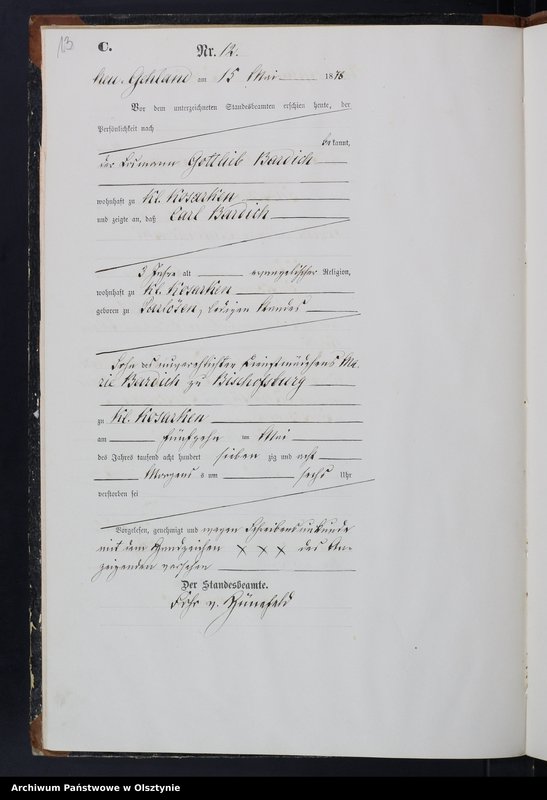 13
C.
Nr. 12.
Neu-Gehland am 15 Mai 1878
Vor dem unterzeichneten Standesbeamten erschien heute, der
Persönlichkeit nach
bekannt,
der Losmann Gottlieb Bardich
wohnhaft zu Kl. Kosarken
und zeigte an, daß Carl Bardich
3 Jahre alt evangelischer Religion,
wohnhaft zu Kl. Kosarken
geboren zu ledigen Standes
Sohn des unverehelichten Dienstmädchens Ma-
rie Bardich zu Bischofsburg
zu Kl. Kosarken
am fünfzehn ten Mai
des Jahres tausend acht hundert sieben zig und acht
Morgens s um sechs Uhr
verstorben sei
Vorgelesen, genehmigt und wegen Schreibensunkunde
mit dem Handzeichen × × × des An-
zeigenden versehen
Der Standesbeamte.
v. Hünefeld
Archiwum Państwowe w Olsztynie